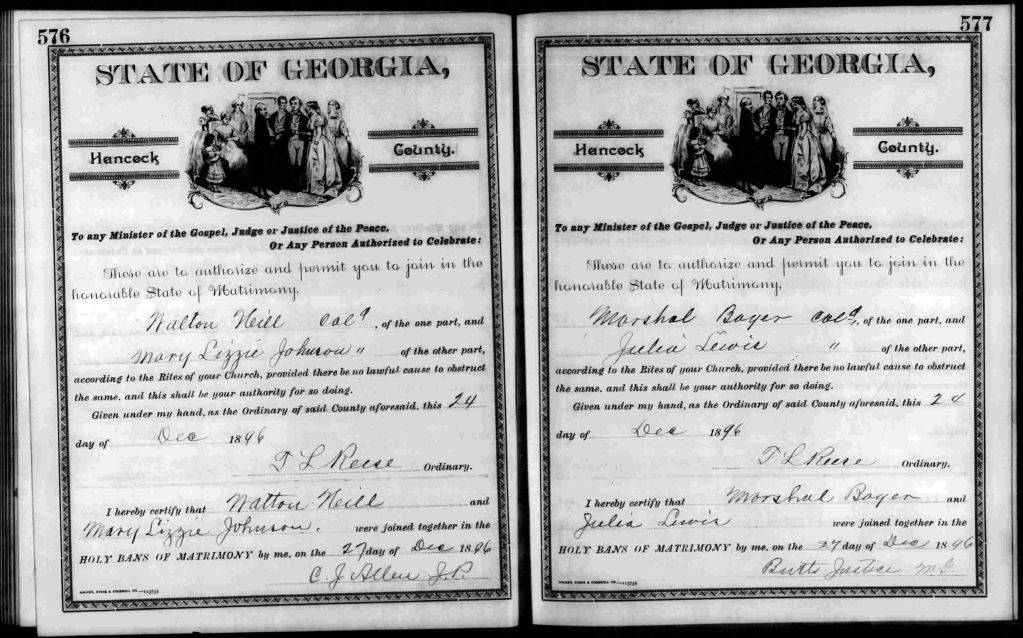 576
STATE OF GEORGIA,
Hancock County.
To any Minister of the Gospel, Judge or Justice of the Peace,
Or Any Person Authorized to Celebrate:
These are to authorize and permit you to join in the
honorable State of Matrimony,
Walton Neill Cold, of the one part, and
Mary Lizzie Johnson " of the other part,
according to the Rites of your Church, provided there be no lawful cause to obstruct
the same, and this shall be your authority for so doing.
Given under my hand, as the Ordinary of said County aforesaid, this 24
day of Dec 1896
T L Reese Ordinary.
I hereby certify that Walton Neill and
Mary Lizzie Johnson. were joined together in the
HOLY BANS OF MATRIMONY by me, on the 27 day of Dec 1896
C. J. Allen J.P.
WALKER, EVANS & COGSWELL CO.—113732
577
STATE OF GEORGIA,
Hancock County.
To any Minister of the Gospel, Judge or Justice of the Peace,
Or Any Person Authorized to Celebrate:
These are to authorize and permit you to join in the
honorable State of Matrimony,
Marshal Boyer Cold, of the one part, and
Julia Lewis " of the other part,
according to the Rites of your Church, provided there be no lawful cause to obstruct
the same, and this shall be your authority for so doing.
Given under my hand, as the Ordinary of said County aforesaid, this 24
day of Dec 1896
T L Reese Ordinary.
I hereby certify that Marshal Boyer and
Julia Lewis were joined together in the
HOLY BANS OF MATRIMONY by me, on the 27 day of Dec 1896
Butts Justice M.G.
WALKER, EVANS & COGSWELL CO.—113732